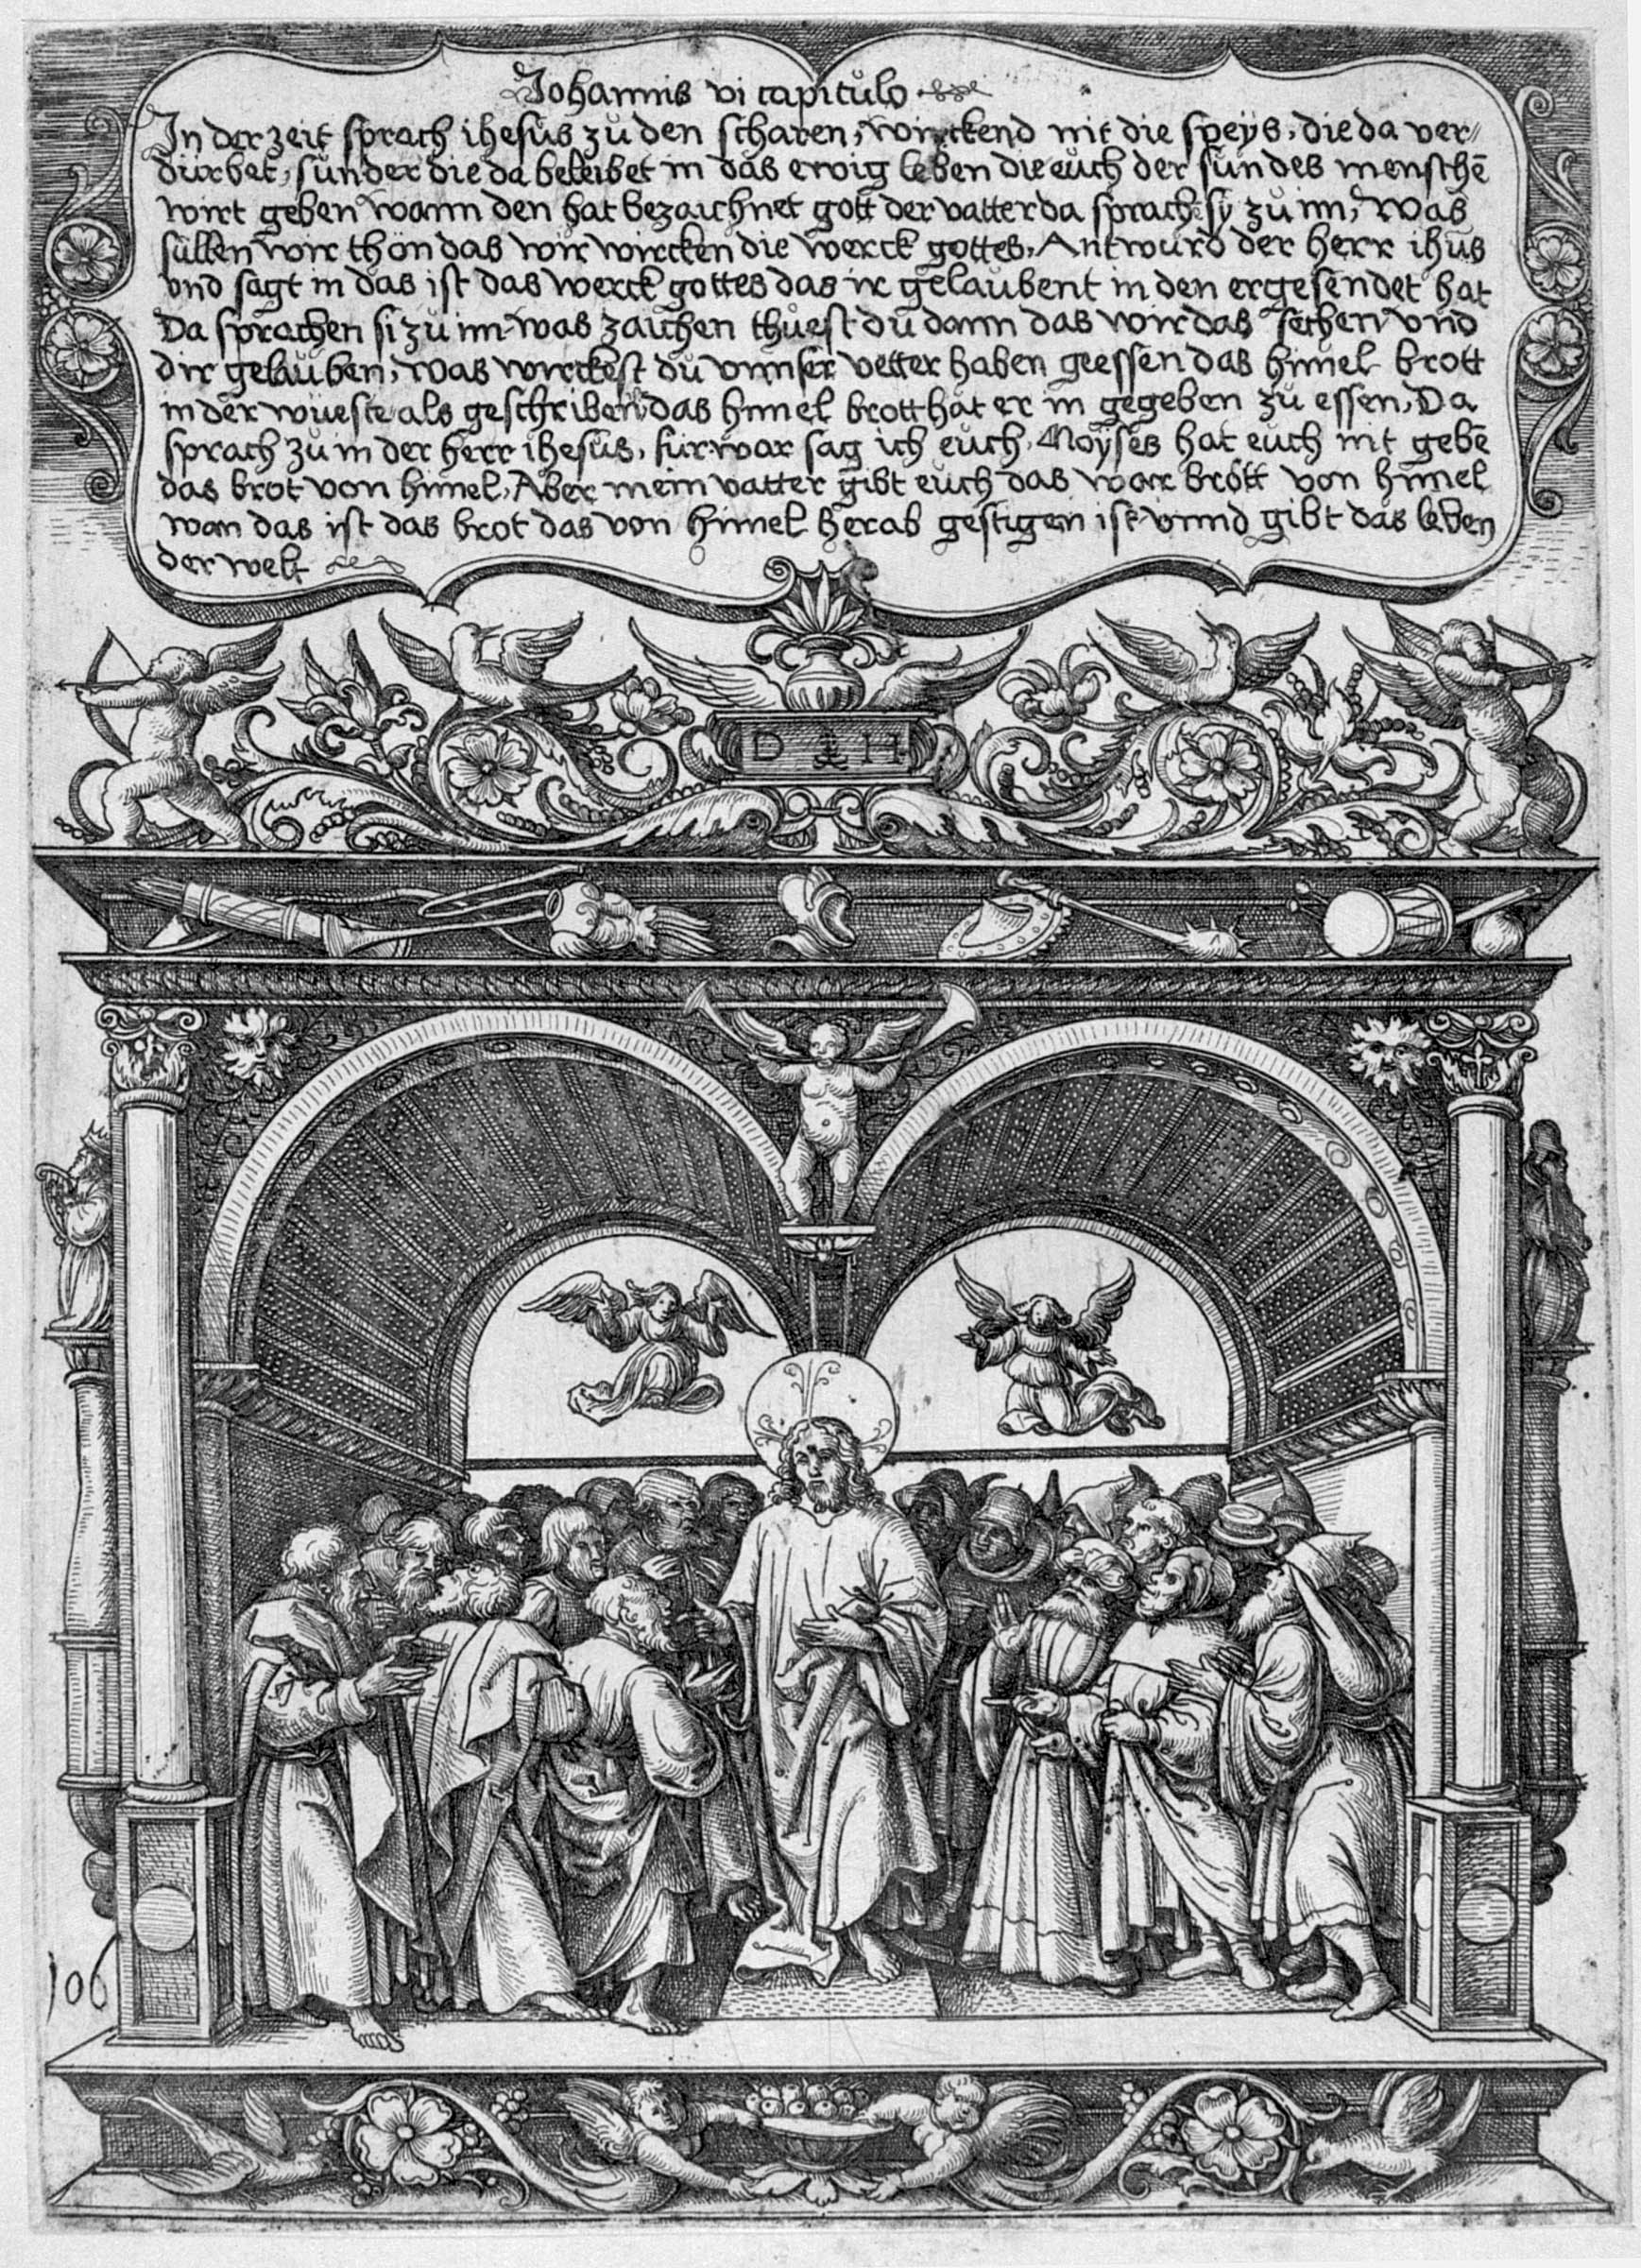 Johannis vi capitulo
In der zeit sprach ihesus zu den scharen, wirckend nit die speys, die da ver⸗
dürbet, sunder die da beleibet in das ewig leben die euch der sun des menschē
wirt geben wann den hat bezaichnet gott der vatter da sprach sy zu im, Was
süllen wir thon das wir wircken die werck gottes, Antwurd der herr ihus
vnd sagt in das ist das werck gottes das ir gelaubent in den er gesendet hat
Da sprachen si zu im was zaichen thuest du dann das wir das sechen vnd
dir gelauben, was wirckest du vnnser vetter haben geessen das himel brott
in der wueste als geschriben das himel brott hat er in gegeben zu essen, Da
sprach zu in der herr ihesus, fur war sag ich euch, Moyses hat euch nit gebē
das brot von himel, Aber mein vatter gibt euch das war brott von himel
wan das ist das brot das von himel herab gestigen ist vnnd gibt das leben
der welt
D H
106